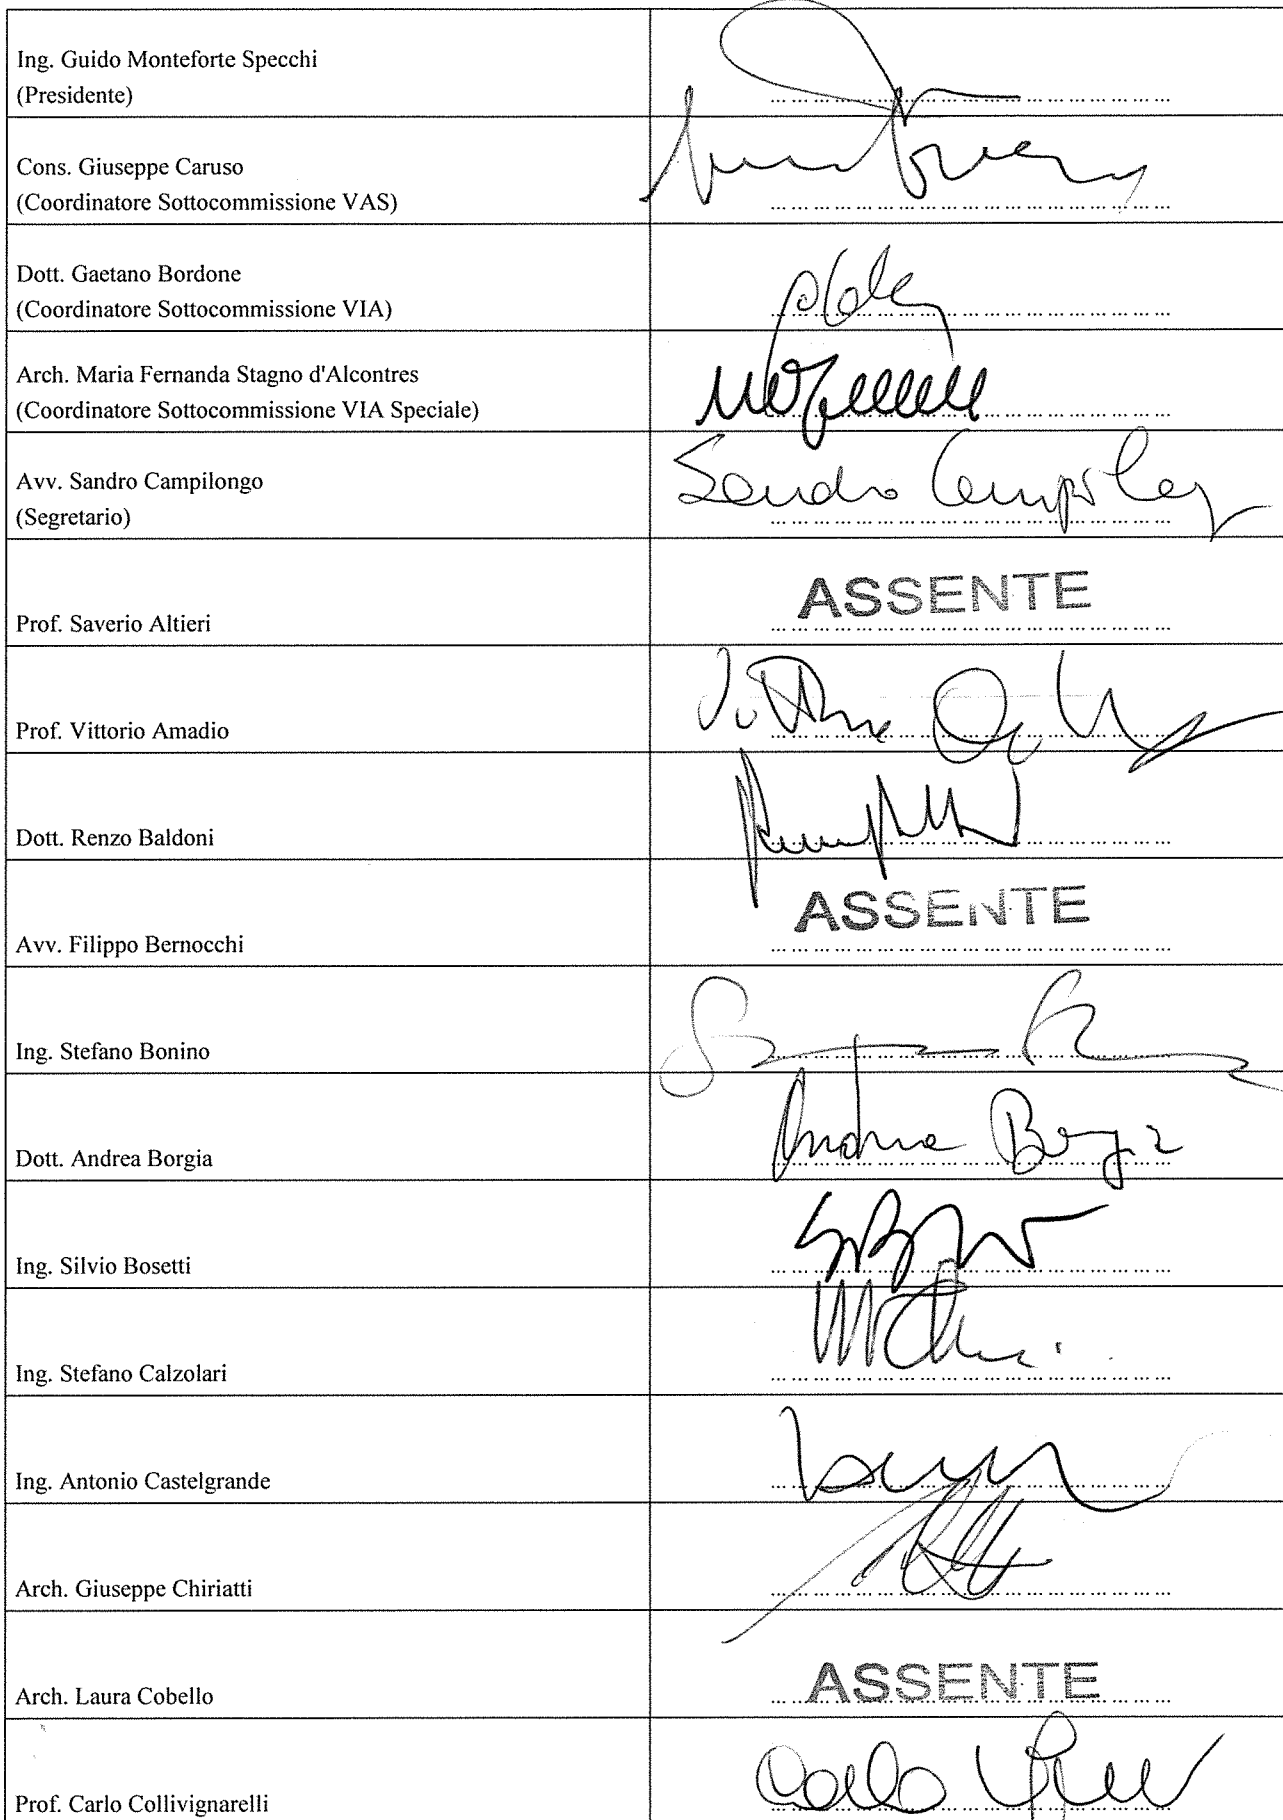 Ing. Guido Monteforte Specchi
(Presidente)
Cons. Giuseppe Caruso
(Coordinatore Sottocommissione VAS)
Dott. Gaetano Bordone
(Coordinatore Sottocommissione VIA)
Arch. Maria Fernanda Stagno d'Alcontres
(Coordinatore Sottocommissione VIA Speciale)
Avv. Sandro Campilongo
(Segretario)
Sandro Campilong
Prof. Saverio Altieri
ASSENTE
Prof. Vittorio Amadio
Dott. Renzo Baldoni
Avv. Filippo Bernocchi
ASSENTE
Ing. Stefano Bonino
Dott. Andrea Borgia
Andrea Borgia
Ing. Silvio Bosetti
Ing. Stefano Calzolari
Ing. Antonio Castelgrande
Arch. Giuseppe Chiriatti
Arch. Laura Cobello
ASSENTE
Prof. Carlo Collivignarelli
Carlo